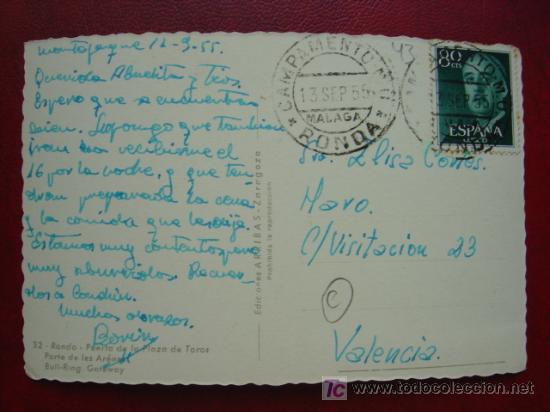 Montejaque 12-9-55.
Querida Abuelita y Tios.
Espero que se encuentren
bien. Supongo que
recibirme el
16 por la noche, y que ten
dran preparada la cena
y la comida que
Estamos muy contentos pero
muy aburridos. Recuer
dos a
Muchos abrazos.
32 - Ronda - Puerta de la Plaza de Toros
Porte de les Arènes
Bull-Ring Gateway
Ediciones ARRIBAS - Zaragoza
Prohibida la reproducción
CAMPAMENTO
13 SEP 55
MALAGA
RONDA
43
80 CTS
ESPAÑA
Elisa Cortés.
Haro.
C/ Visitación 23
C
Valencia.
todocoleccion
www.todocoleccion.net